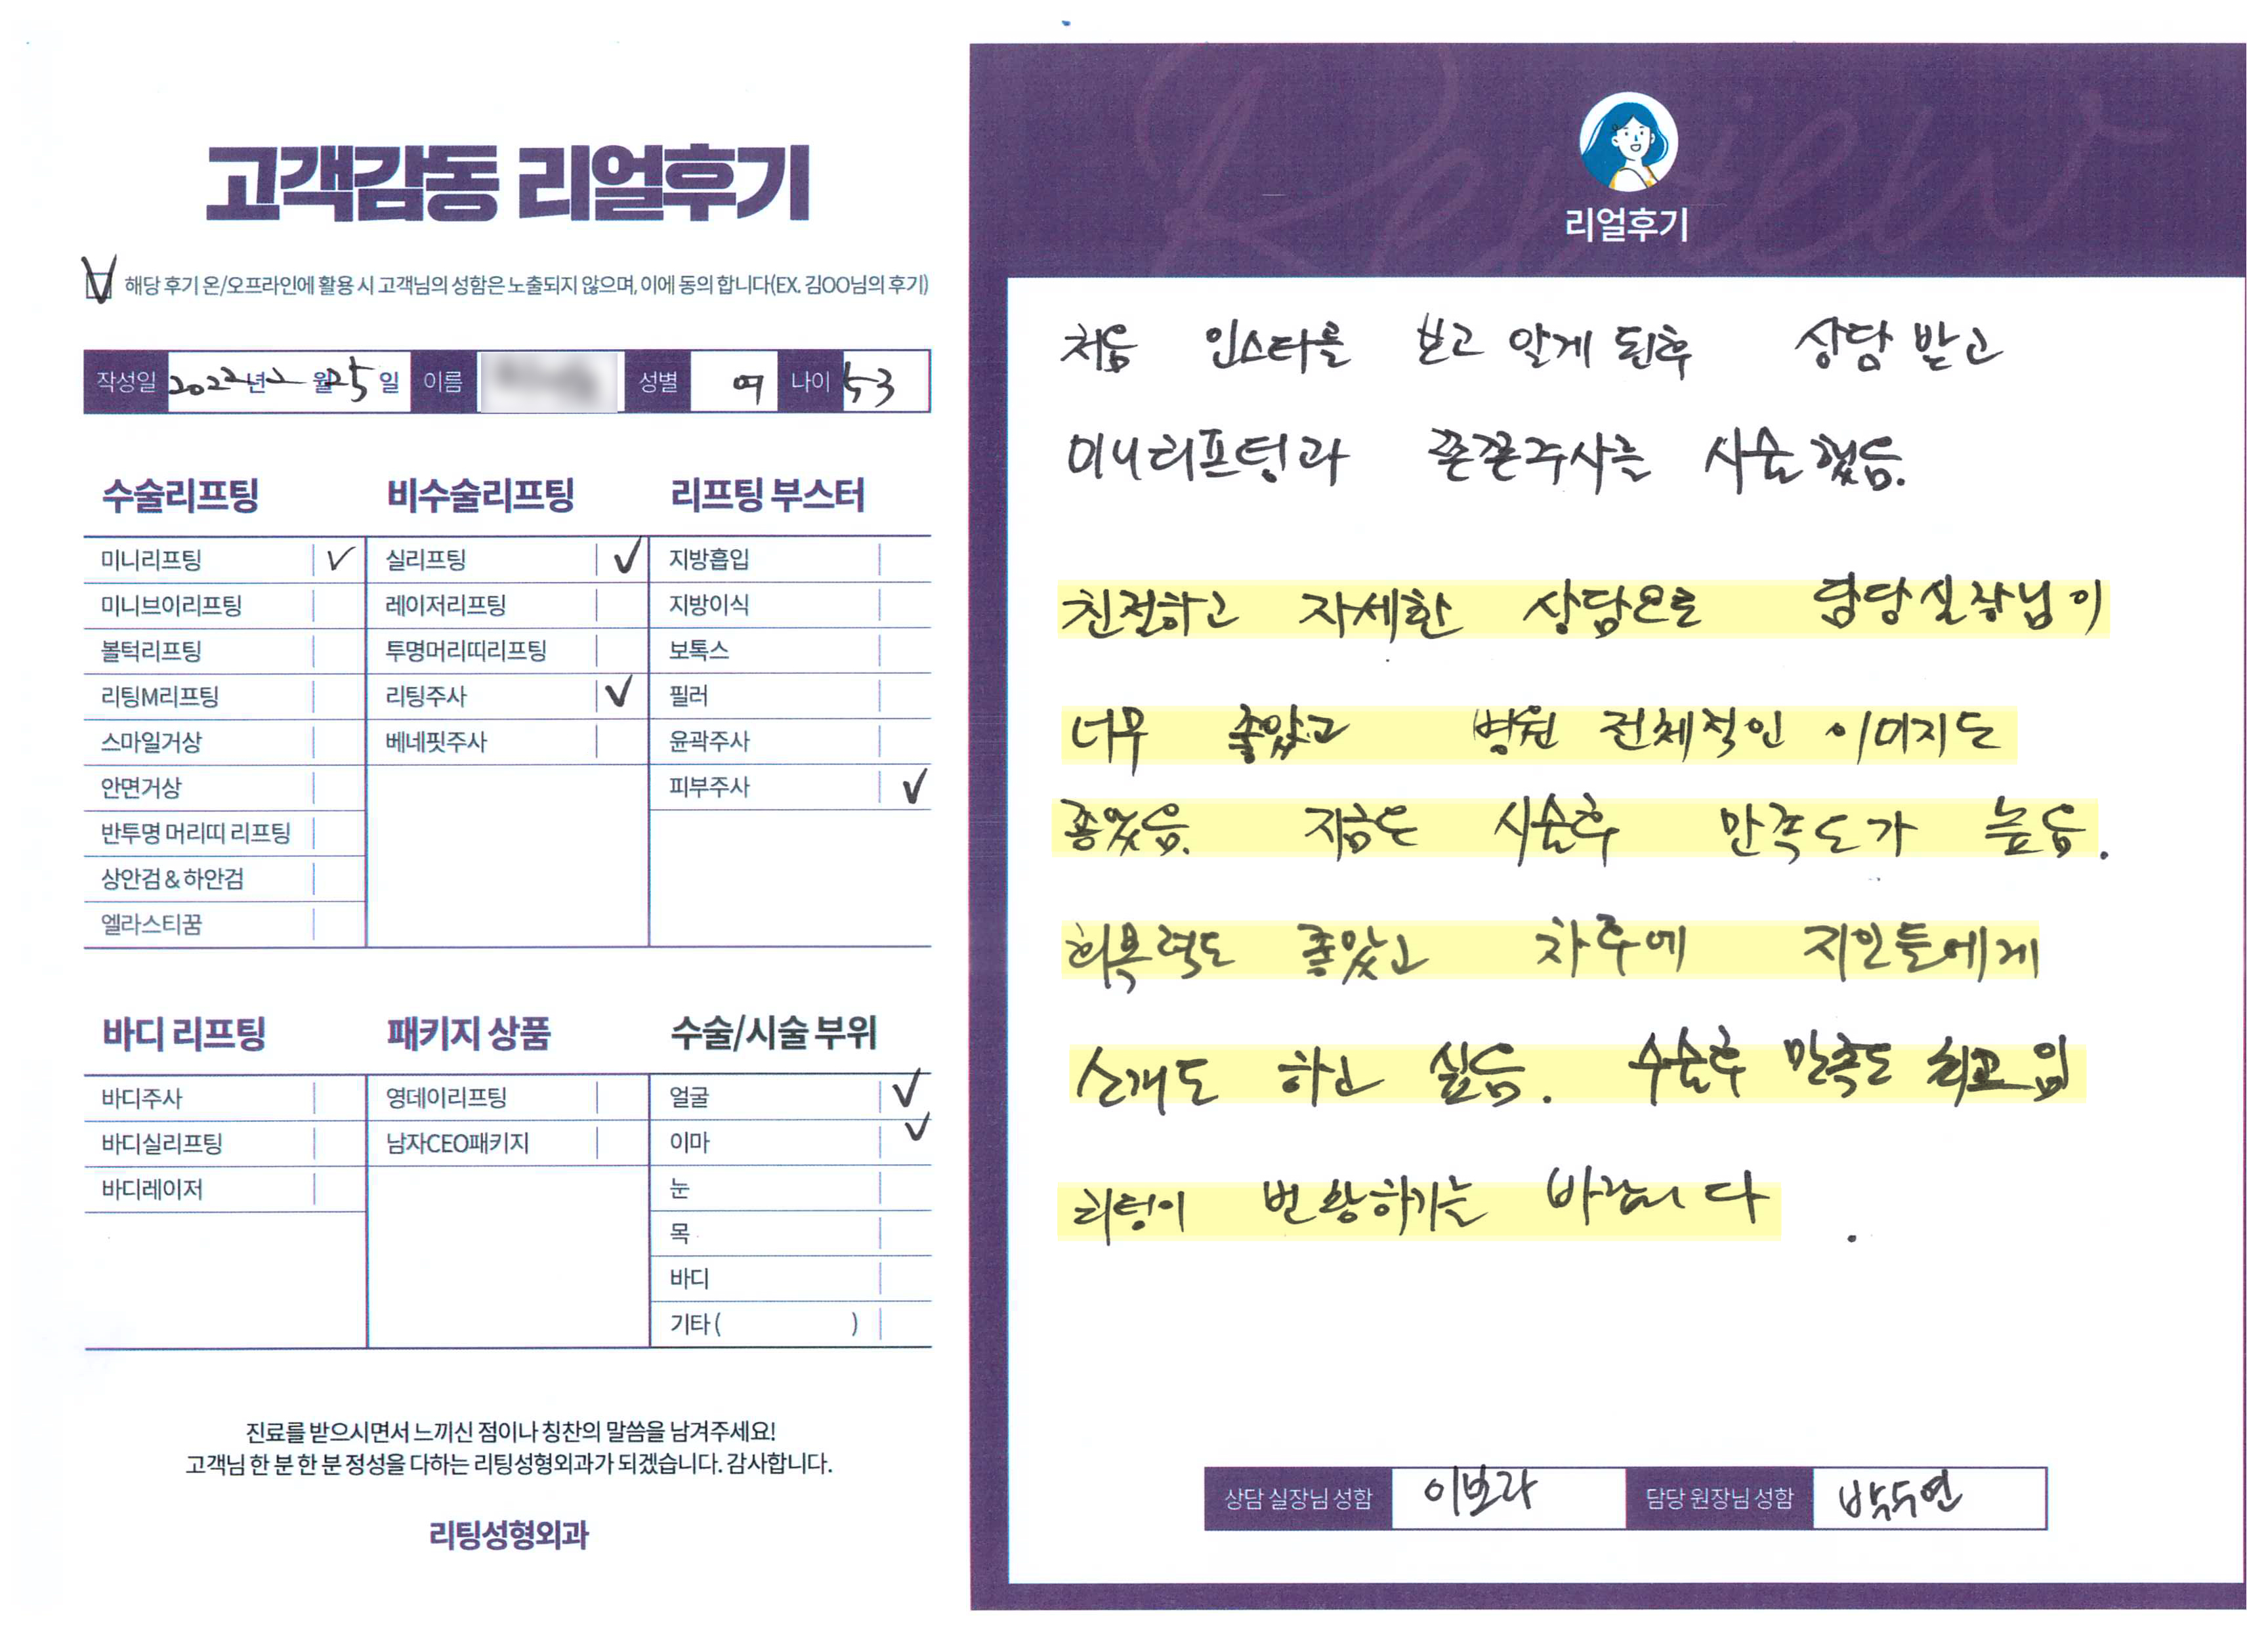 고객감동 리얼후기
해당 후기 온/오프라인에 활용 시 고객님의 성함은 노출되지 않으며, 이에 동의 합니다(EX. 김OO님의 후기)
작성일 2022년 2월 25일 이름 성별 여 나이 53
수술리프팅
미니리프팅 ✓
미니브이리프팅
볼턱리프팅
리팅M리프팅
스마일거상
안면거상
반투명 머리띠 리프팅
상안검 & 하안검
엘라스티꿈
비수술리프팅
실리프팅 ✓
레이저리프팅
투명머리띠리프팅
리팅주사 ✓
베네핏주사
리프팅 부스터
지방흡입
지방이식
보톡스
필러
윤곽주사
피부주사 ✓
바디 리프팅
바디주사
바디실리프팅
바디레이저
패키지 상품
영데이리프팅
남자CEO패키지
수술/시술 부위
얼굴 ✓
이마 ✓
눈
목
바디
기타 ( )
진료를 받으시면서 느끼신 점이나 칭찬의 말씀을 남겨주세요!
고객님 한 분 한 분 정성을 다하는 리팅성형외과가 되겠습니다. 감사합니다.
리팅성형외과
Review
리얼후기
처음 인스타를 보고 알게 된후 상담 받고
미니리프팅과 쫀쫀주사를 시술했음.
친절하고 자세한 상담으로 담당실장님이
너무 좋았고 병원 전체적인 이미지도
좋았음. 지금은 시술후 만족도가 높음.
회복력도 좋았고 차후에 지인들에게
소개도 하고 싶음. 수술후 만족도 최고임
리팅이 번창하기를 바랍니다.
상담 실장님 성함 이보라 담당 원장님 성함 박수연